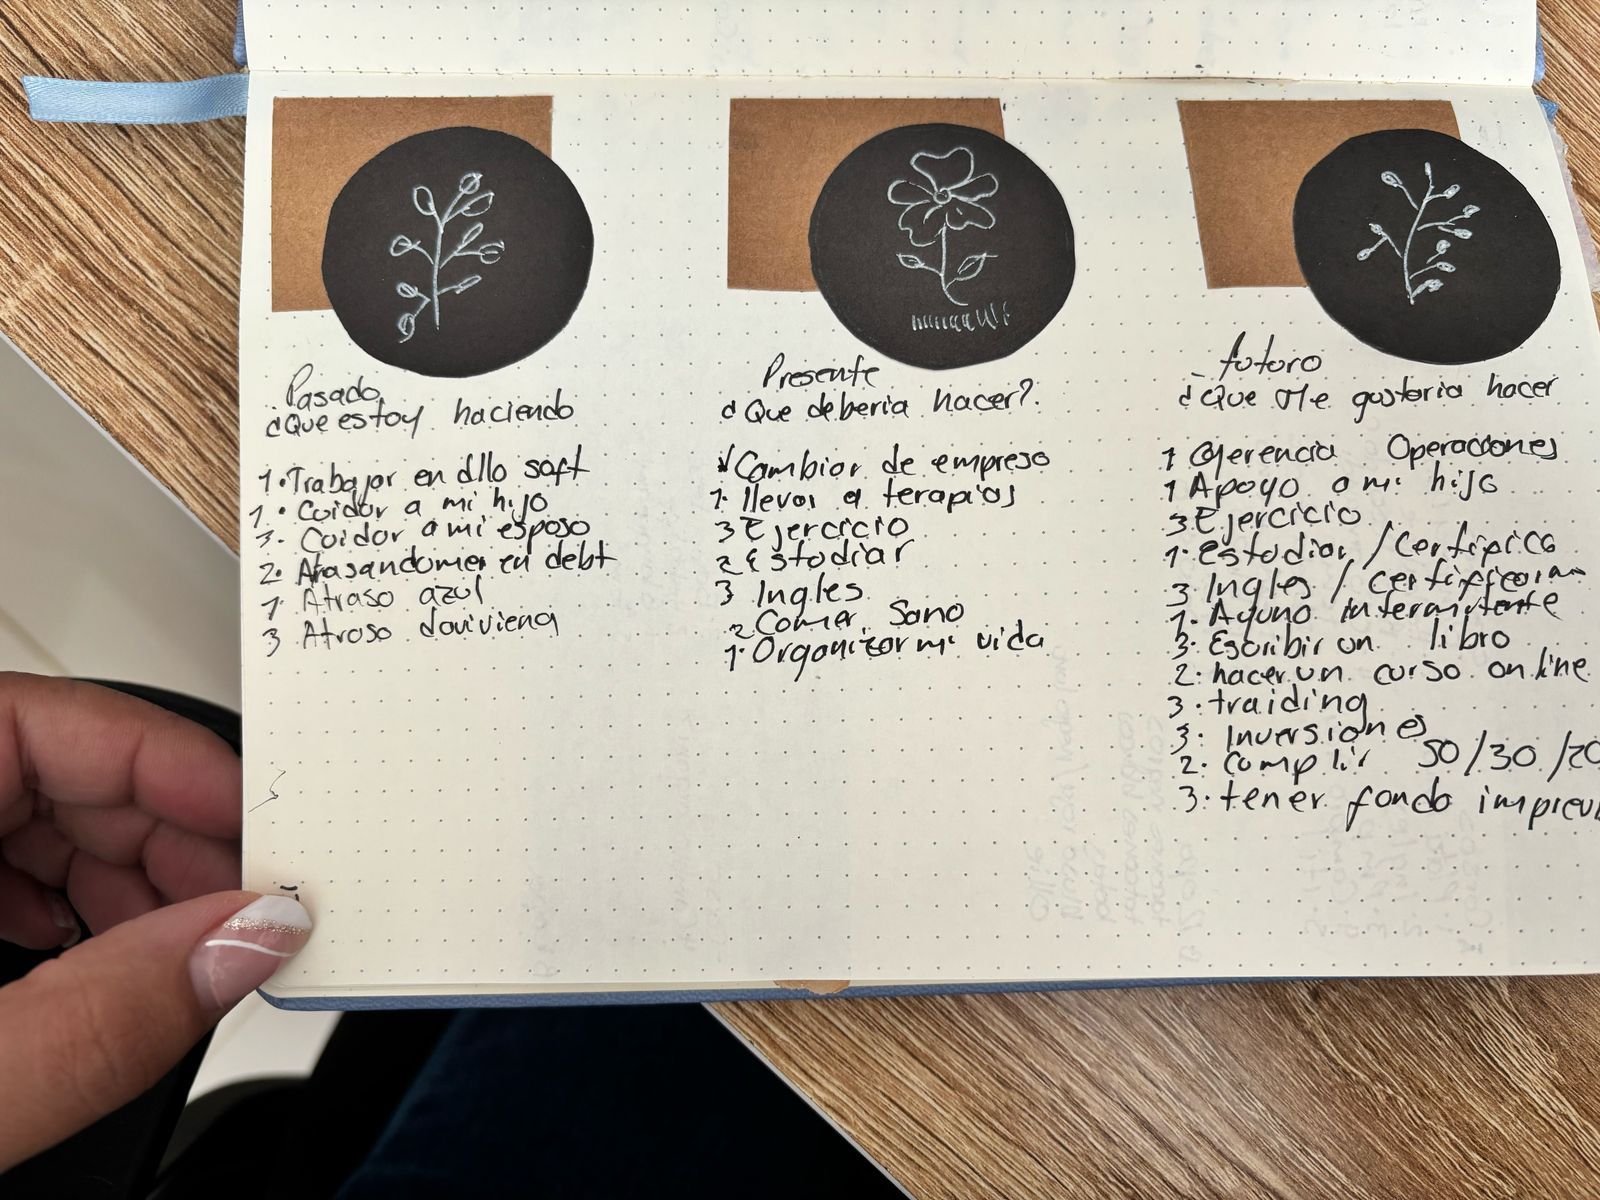 Pasado
¿Que estoy haciendo
1. Trabajar en dllo soft
1. Cuidar a mi hijo
3. Cuidar a mi esposo
2. Atrasandome en debt
1. Atraso azul
3 Atraso davivienda
Presente
¿Que deberia hacer?.
Cambiar de empresa
1. llevar a terapias
3 Ejercicio
2 Estudiar
3 Ingles
2 Comer Sano
1. Organizar mi vida
futuro
¿Que Me gustaria hacer
1 Gerencia Operaciones
1 Apoyo a mi hijo
3 Ejercicio
1. Estudiar /certifica
3 Ingles /
1. Ayuno intermitente
3. Escribir un libro
2. hacer un curso online
3. traiding
3. Inversiones
2. Cumplir 50/30/20
3. tener fondo